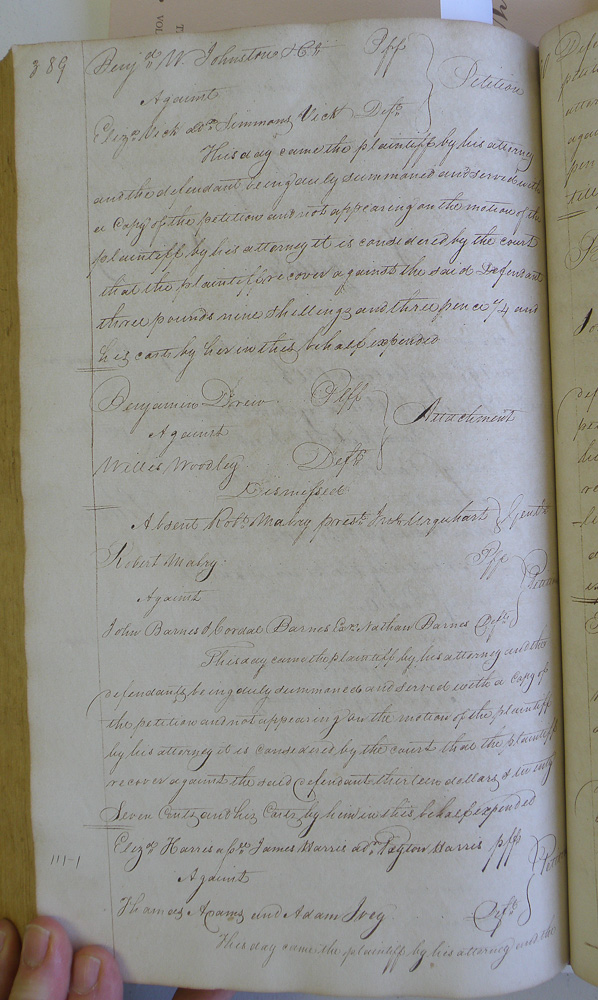 389
Benja W. Johnston & Co Plff
Against Petition
Eliza Vick adx Simmons Vick Deft
This day came the plaintiff by his attorney
and the defendant being duly summoned and served with
a Copy of the petition and not appearing on the motion of the
plaintiff by his attorney it is considered by the court
that the plaintiff recover against the said Defendant
three pounds nine shillings and three pence 1/4 and
his costs by her in this behalf expended
Benjamin Drew Plff
Against Attachment
Willis Woodley Deft
Dismissed
Absent Robt Mabry prest Urquhart Gent
Robert Mabry Plff
Against
John Barnes & Cordal Barnes Exrs Nathan Barnes Defts
This day came the plaintiff by his attorney and the
defendants being duly summoned and served with a Copy of
the petition and not appearing on the motion of the plaintiff
by his attorney it is considered by the court that the plaintiff
recover against the said defendant thirteen dollars & twenty
Seven Cents and his Costs by him in this behalf expended
Eliza Harris James Harris adr Payton Harris plff
111-1
Against
Thomas Adams and Adam Ivey Defts
This day came the plaintiff by his attorney and the